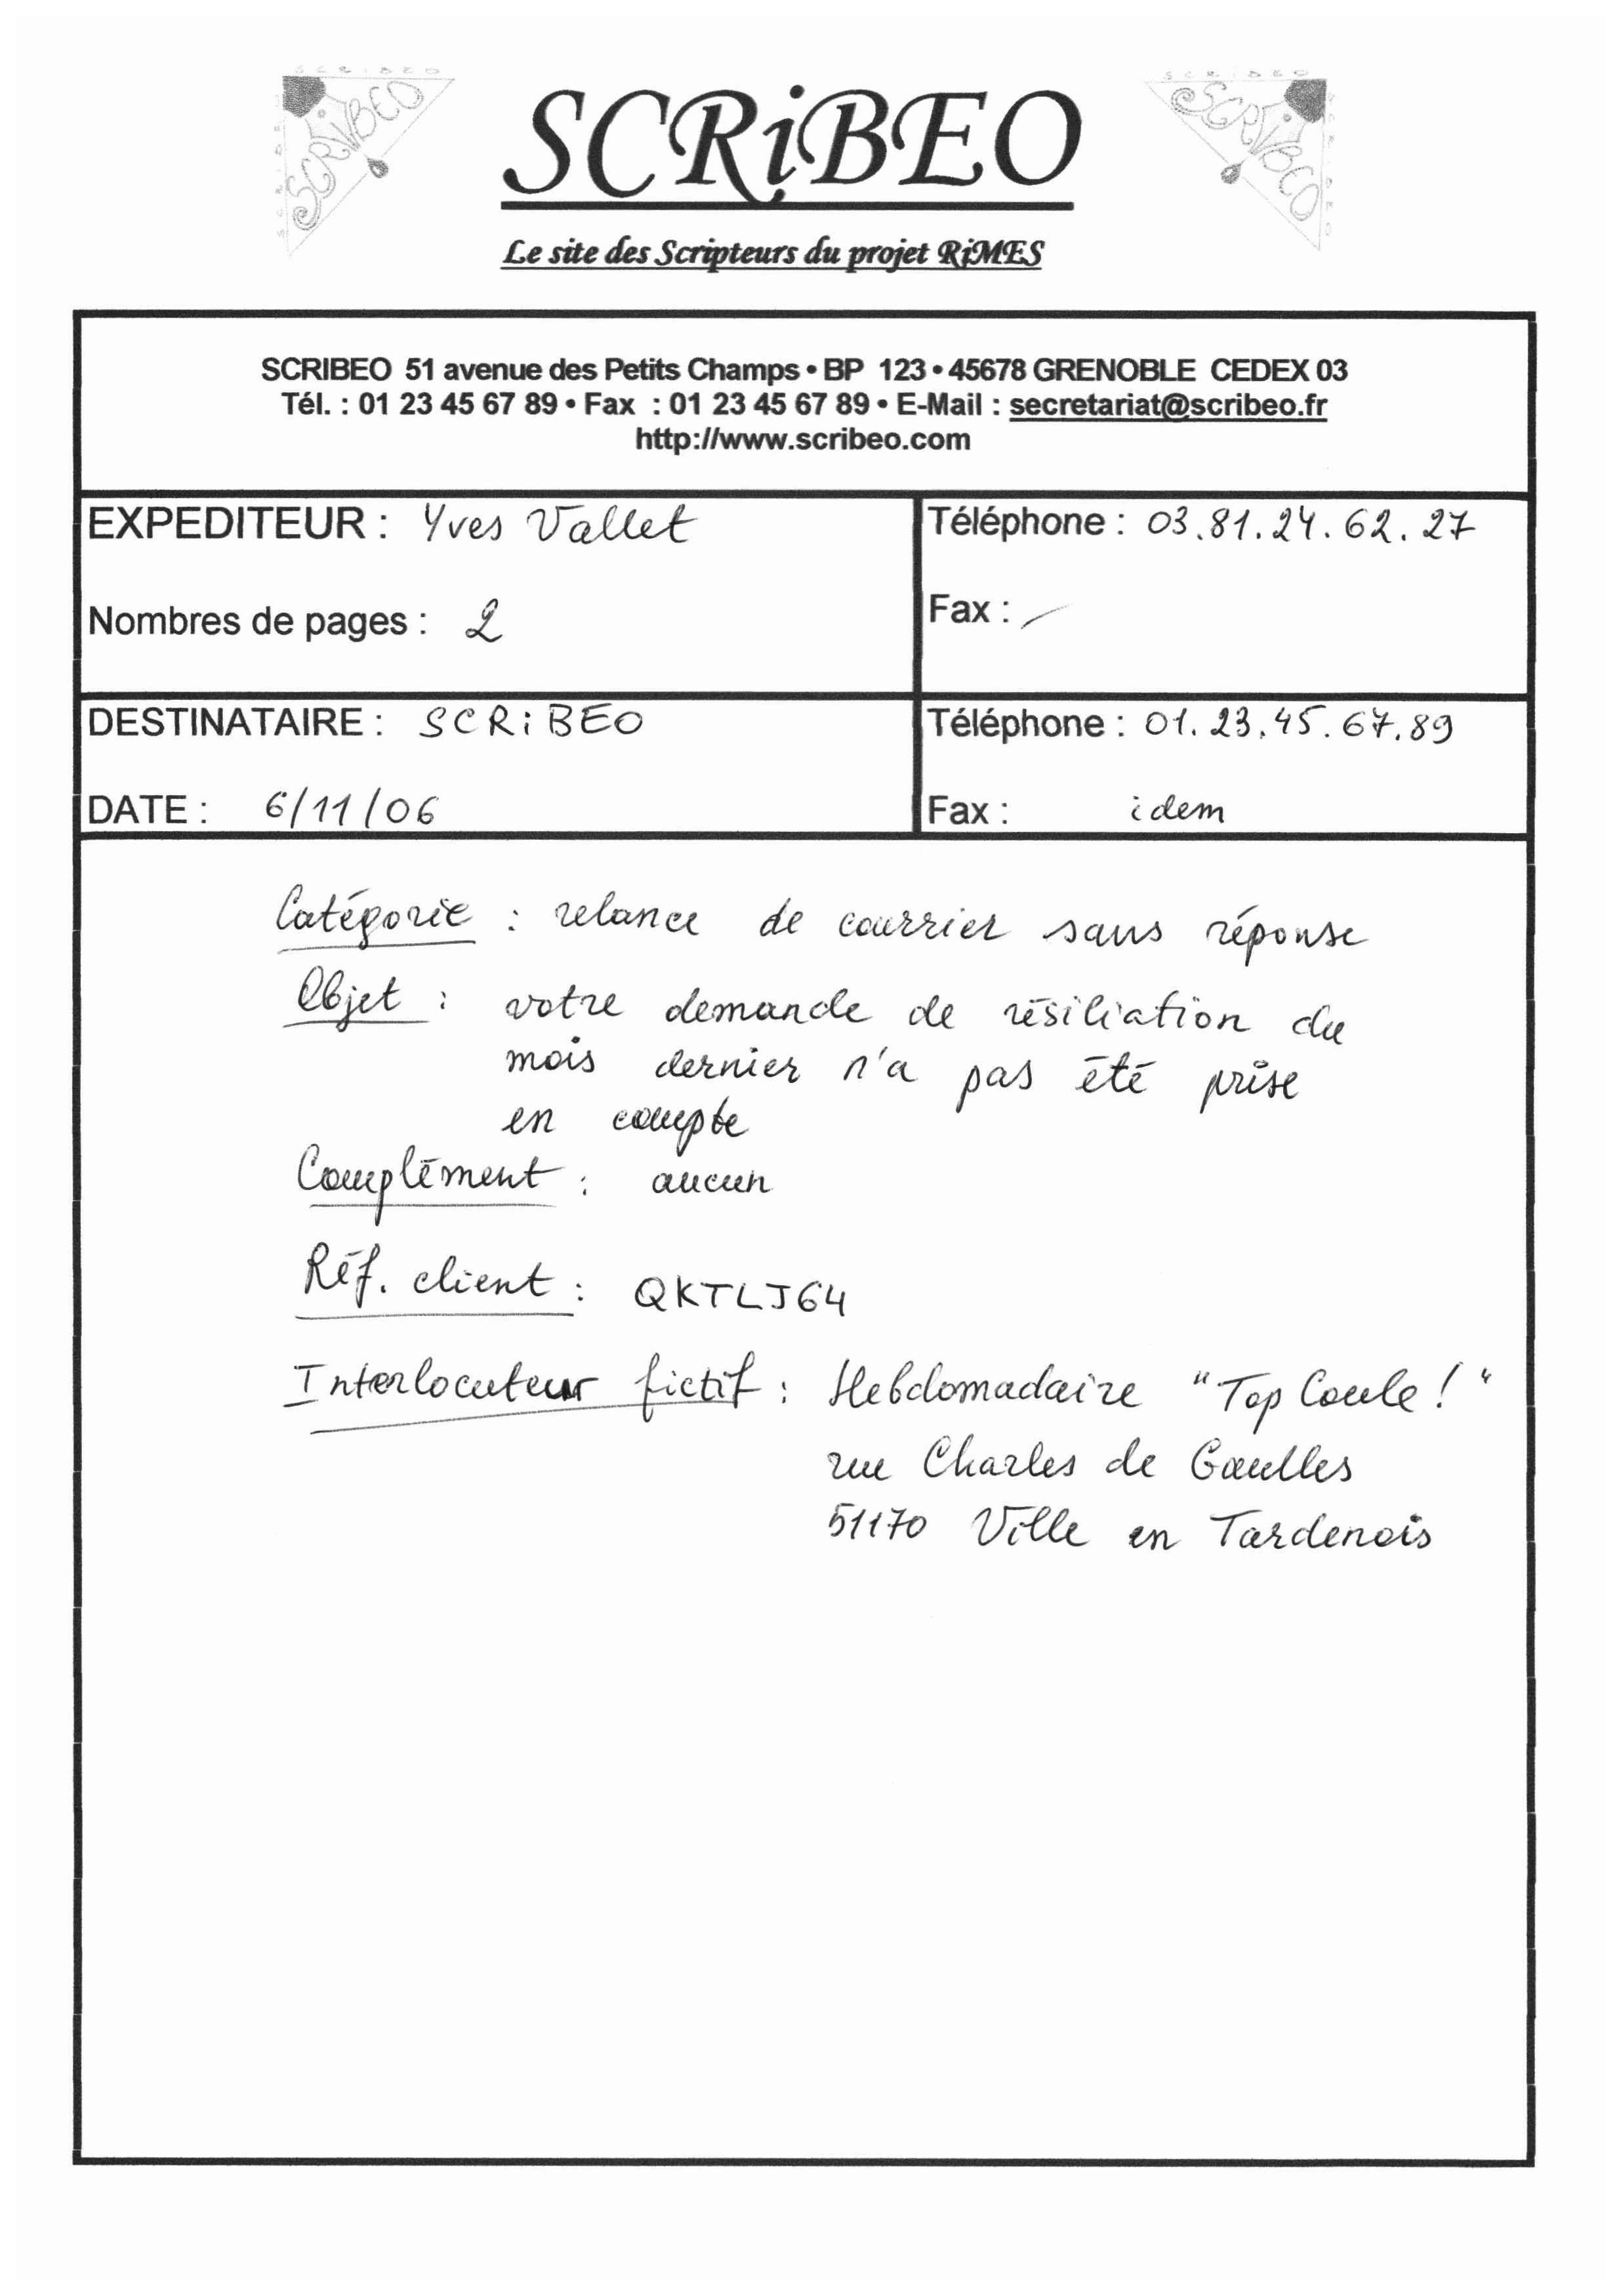 SCRiBEO
SCRiBEO
SCRiBEO
SCRiBEO
SCRiBEO
Le site des Scripteurs du projet RiMES
SCRIBEO 51 avenue des Petits Champs • BP 123 • 45678 GRENOBLE CEDEX 03
Tél. : 01 23 45 67 89 • Fax : 01 23 45 67 89 • E-Mail : secretariat@scribeo.fr
http://www.scribeo.com
EXPEDITEUR : Yves Vallet
Téléphone : 03.81.24.62.27
Nombres de pages : 2
Fax : /
DESTINATAIRE : SCRiBEO
Téléphone : 01.23.45.67.89
DATE : 6/11/06
Fax : idem
Catégorie : relance de courrier sans réponse
Objet : votre demande de résiliation du
mois dernier n'a pas été prise
en compte
Complément : aucun
Réf. client : QKTLJ64
Interlocuteur fictif : Hebdomadaire "Top Coule ! "
rue Charles de Gaulles
51170 Ville en Tardenois